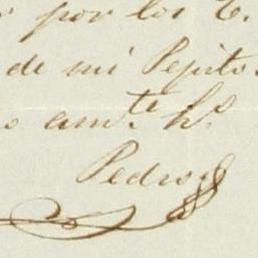 por los E.
de mi Pepito.
o amte. ho.
Pedro